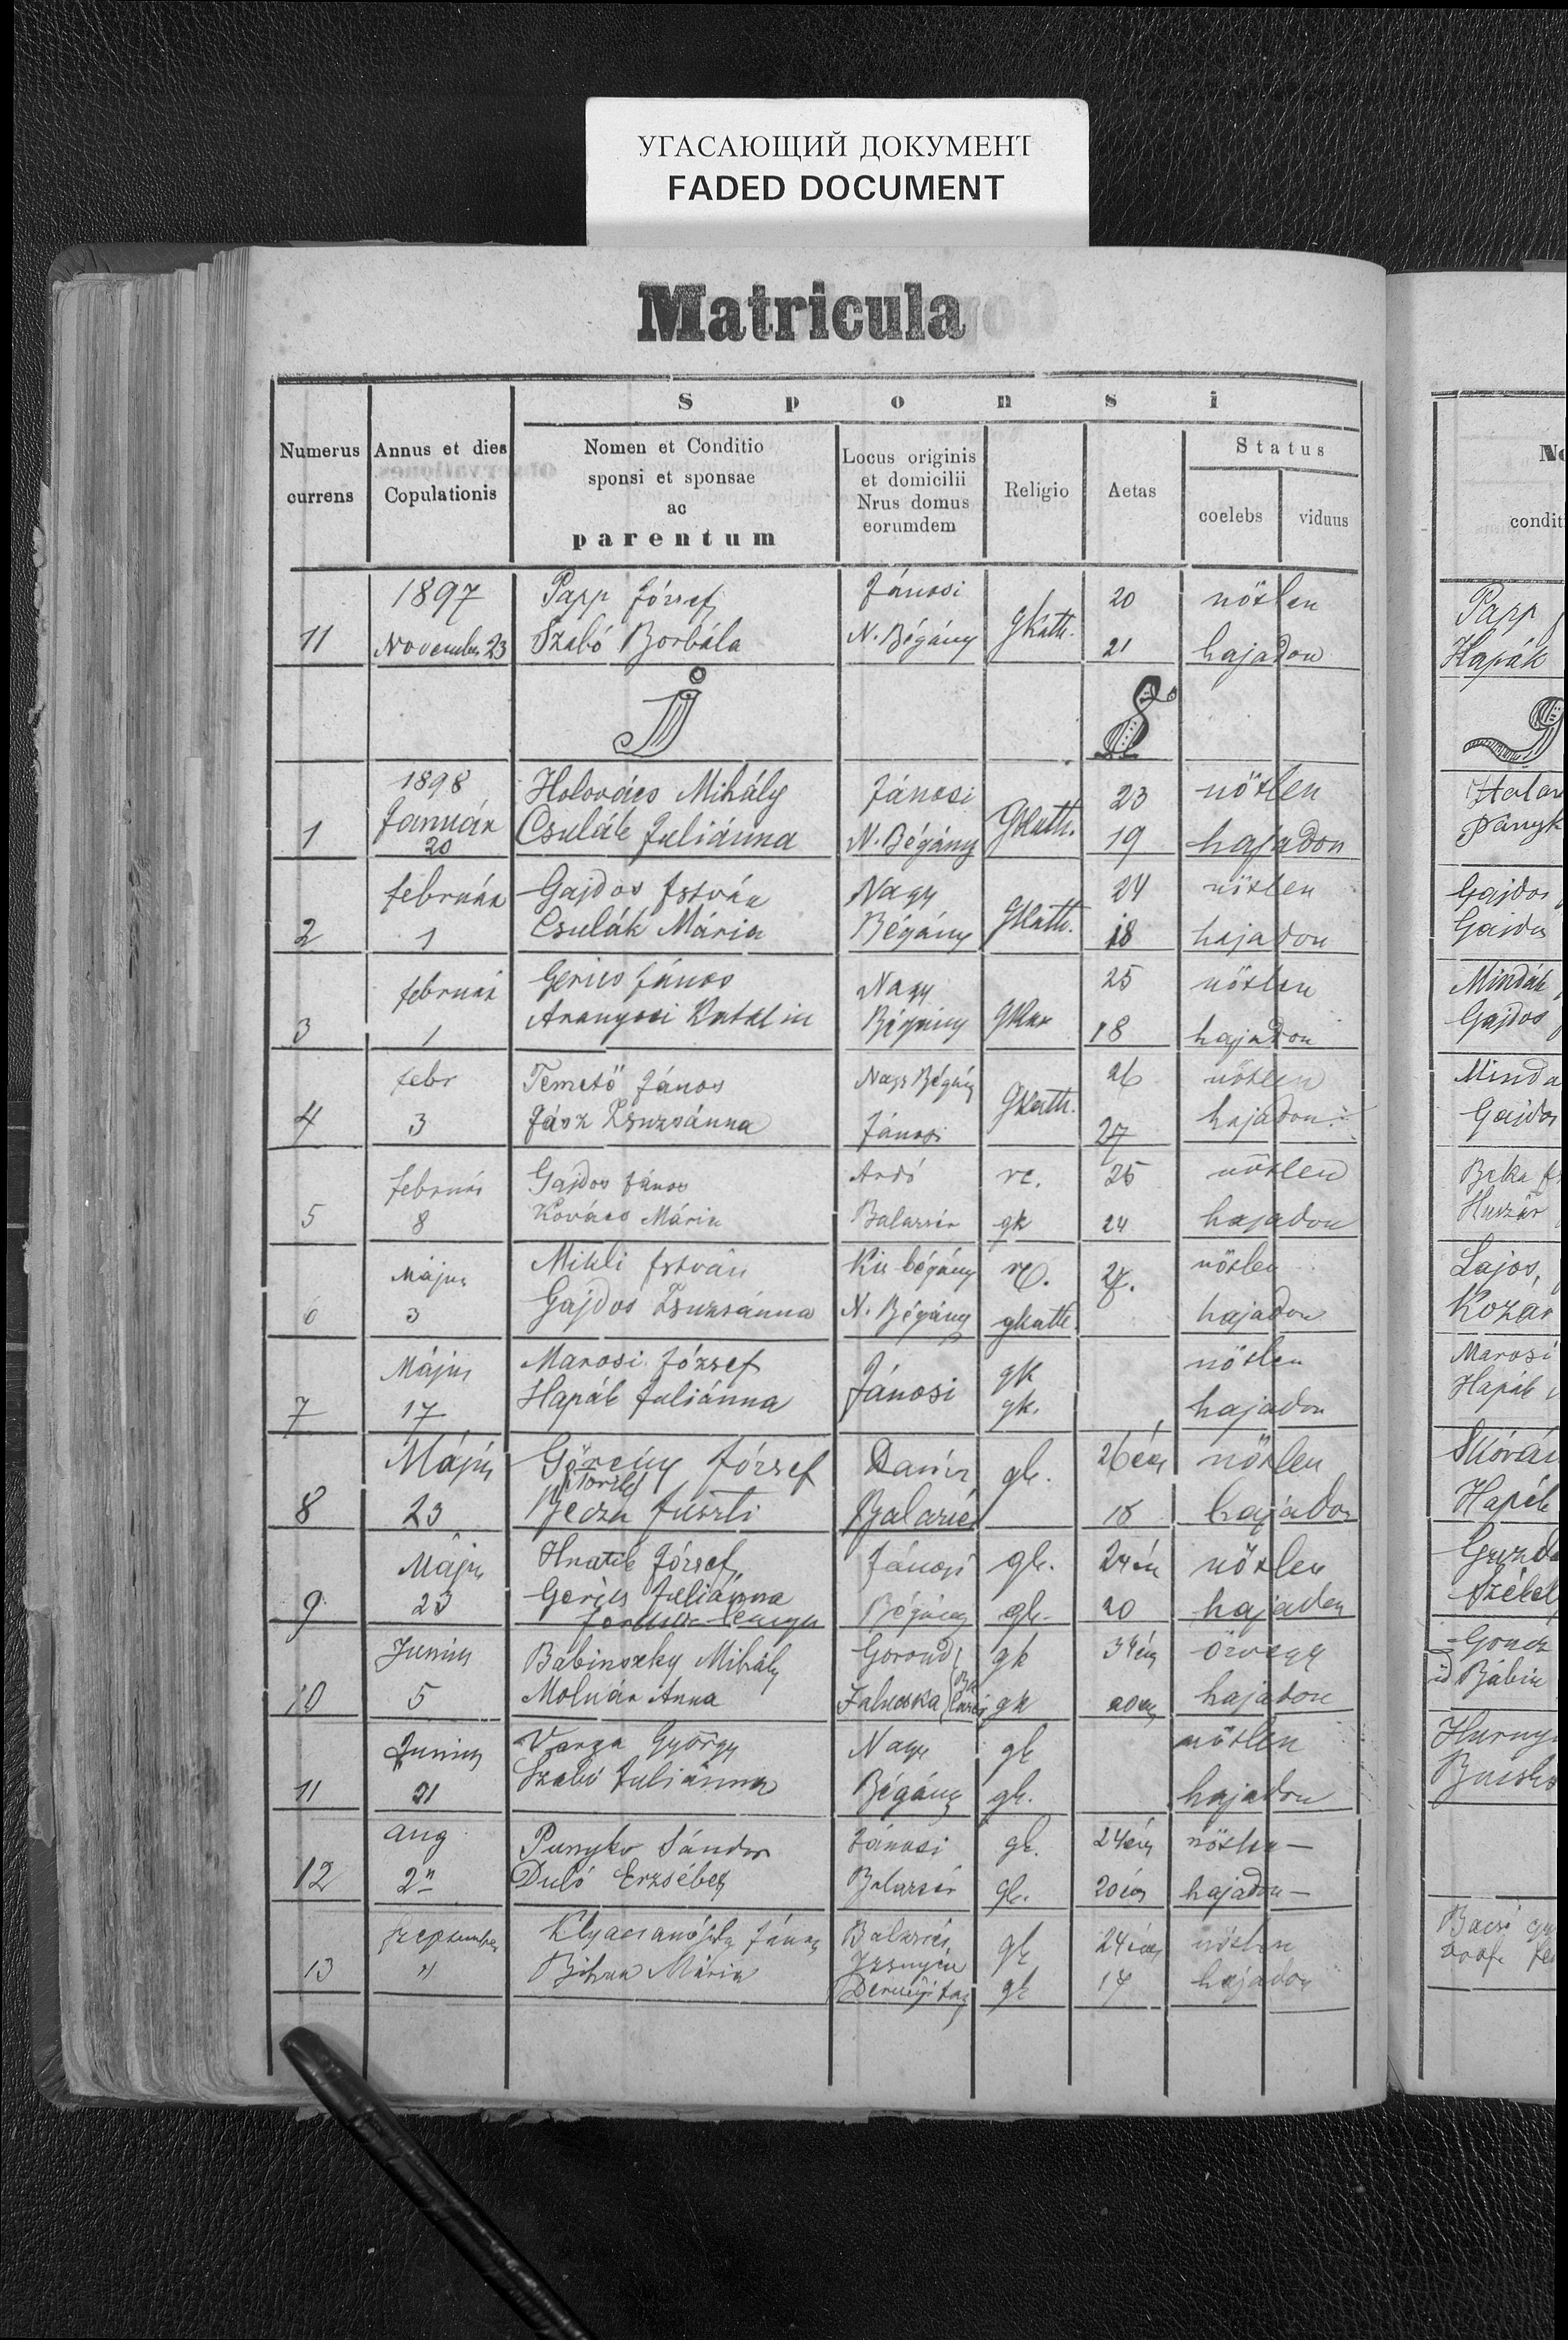 УГАСАЮЩИЙ ДОКУМЕНТ
FADED DOCUMENT
Matricula
Sponsi
Numerus currens
Annus et dies Copulationis
Nomen et Conditio
sponsi et sponsae
ac
parentum
Locus originis
et domicilii
Nrus domus
eorumdem
Religio
Aetas
Status
coelebs
viduus
condit
1897 Papp József Jánosi 20 nőtlen
11 November 23 Szabó Borbála N. Bégány gkath. 21 hajadon
Papp
Hapák
1898 Holovács Mihály Jánosi 23 nőtlen
1 Január 20 Csulák Juliánna N. Bégány Gkath. 19 hajadon
Február Gajdos István Nagy 24 nőtlen
2 1 Csulák Mária Bégány Gkath. 18 hajadon
Gajdos
Február Gerics János Nagy 25 nőtlen
3 1 Aranyosi Katalin Bégány gkat 18 hajadon
Mindák
Gajdos
Febr Temető János Nagy Bégány 26 nőtlen
4 3 Jász Zsuzsánna Jánosi Gkath. 27 hajadon
Minda
Gajdos
Február Gajdos János Ardó rc. 25 nőtlen
5 8 Kovács Mária Balazsér gk 24 hajadon
Huszár
Május Mikli István Kis bégány rc. 27. nőtlen
6 3 Gajdos Zsuzsánna N. Bégány gkath. hajadon
Lajos,
Kozár
Május Marosi József Jánosi gk nőtlen
7 17 Hapák Juliánna gk. hajadon
Marosi
Hapák
Május Görény József gk. 26 éves nőtlen
8 23 Becza Juszti Balazsér 18 hajadon
Hapák
Május Hnatik József Jánosi gk. 24 év nőtlen
9 23 Gerics Juliánna Bégány gk. 20 hajadon
Székel
Junius Babinszky Mihály Gorond gk 34 év özvegy
10 5 Molnár Anna Zaluzska gk 20 év hajadon
Babin
Junius Varga György Nagy gk nőtlen
11 21 Szabó Juliánna Bégány gk. hajadon
Aug Punyko Sándor Jánosi gk. 24 év nőtlen —
12 2 Duló Erzsébet Balazsér gk. 20 év hajadon —
Szeptember János Balazsér gk 24 éves nőtlen
13 Bihun Mária gk 17 hajadon